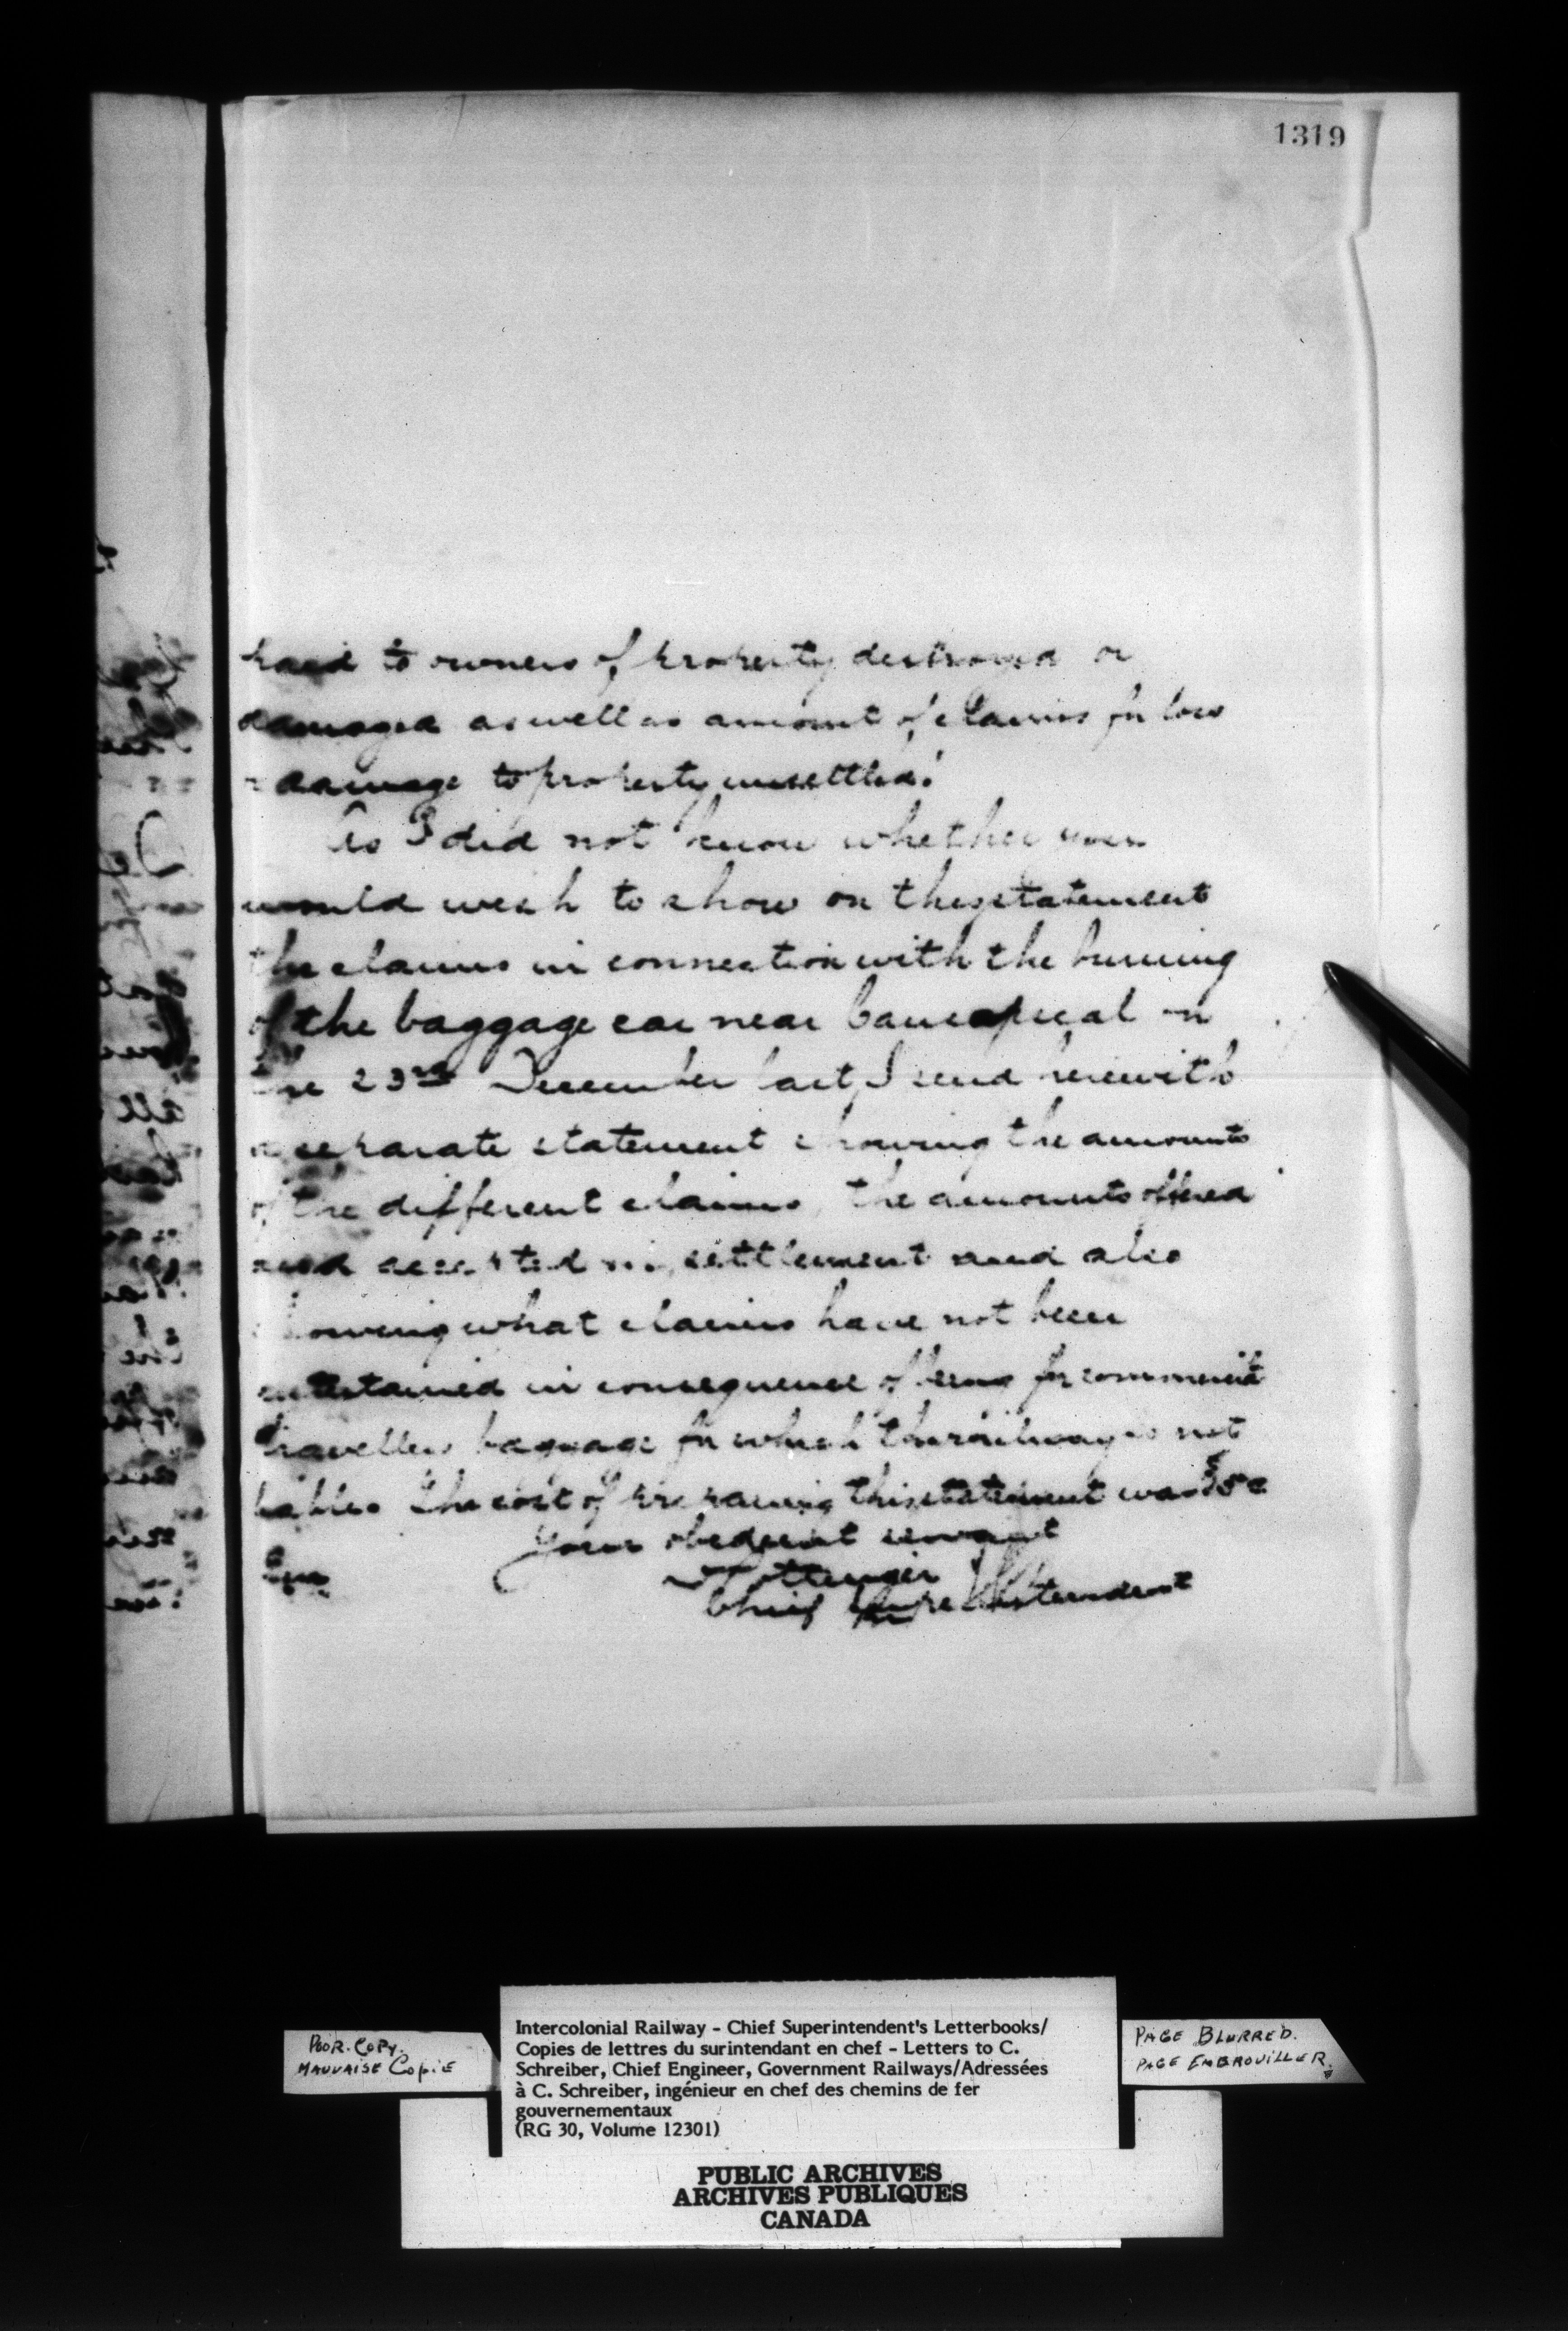 1319
paid to owners of property destroyed or
damaged as well as amount of claims for loss
damage to property unsettled.'
As I did not know whether you
would wish to show on the statement
the claims in connection with the burning
of the baggage car near Causapscal on
the 23rd December last, I send herewith
a separate statement showing the amounts
of the different claims, the amounts offered
and accepted in settlement and also
showing what claims have not been
entertained in consequence of being for commercial
travellers baggage for which the railway is not
liable. The cost of preparing this statement was
Your obedient servant
D Pottinger
Chief Superintendent
POOR. COPY.
MAUVAISE COPIE
Intercolonial Railway - Chief Superintendent's Letterbooks/
Copies de lettres du surintendant en chef - Letters to C.
Schreiber, Chief Engineer, Government Railways/Adressées
à C. Schreiber, ingénieur en chef des chemins de fer
gouvernementaux
(RG 30, Volume 12301)
PAGE BLURRED.
PAGE EMBROUILLER.
PUBLIC ARCHIVES
ARCHIVES PUBLIQUES
CANADA